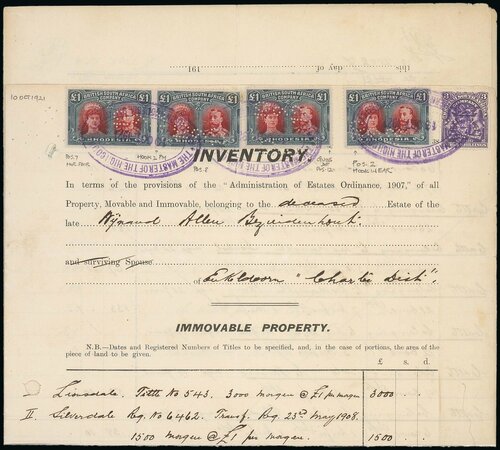 this day of 191
10 OCT 1921
£1 BRITISH SOUTH AFRICA COMPANY £1
RHODESIA
£1 BRITISH SOUTH AFRICA COMPANY £1
RHODESIA
£1 BRITISH SOUTH AFRICA COMPANY £1
RHODESIA
£1 BRITISH SOUTH AFRICA COMPANY £1
RHODESIA
SHILLINGS
THE MASTER OF THE HIGH
MASTER OF THE HIGH
POS: 7
POS: 8
POS: 2
HOOK IN EAR
INVENTORY
In terms of the provisions of the "Administration of Estates Ordinance, 1907," of all
Property, Movable and Immovable, belonging to the deceased Estate of the
late Wynand Allen Bezuidenhout.
and surviving Spouse.
of Enkeldoorn "Charter Dist".
IMMOVABLE PROPERTY.
N.B.—Dates and Registered Numbers of Titles to be specified, and, in the case of portions, the area of the
piece of land to be given.
£ s. d.
I Linsdale. Title No 543. 3000 morgen @ £1 per morgen 3000
II Silverdale Reg. No 6462. Transf. Reg. 23rd May 1908.
1500 morgen @ £1 per morgen. 1500